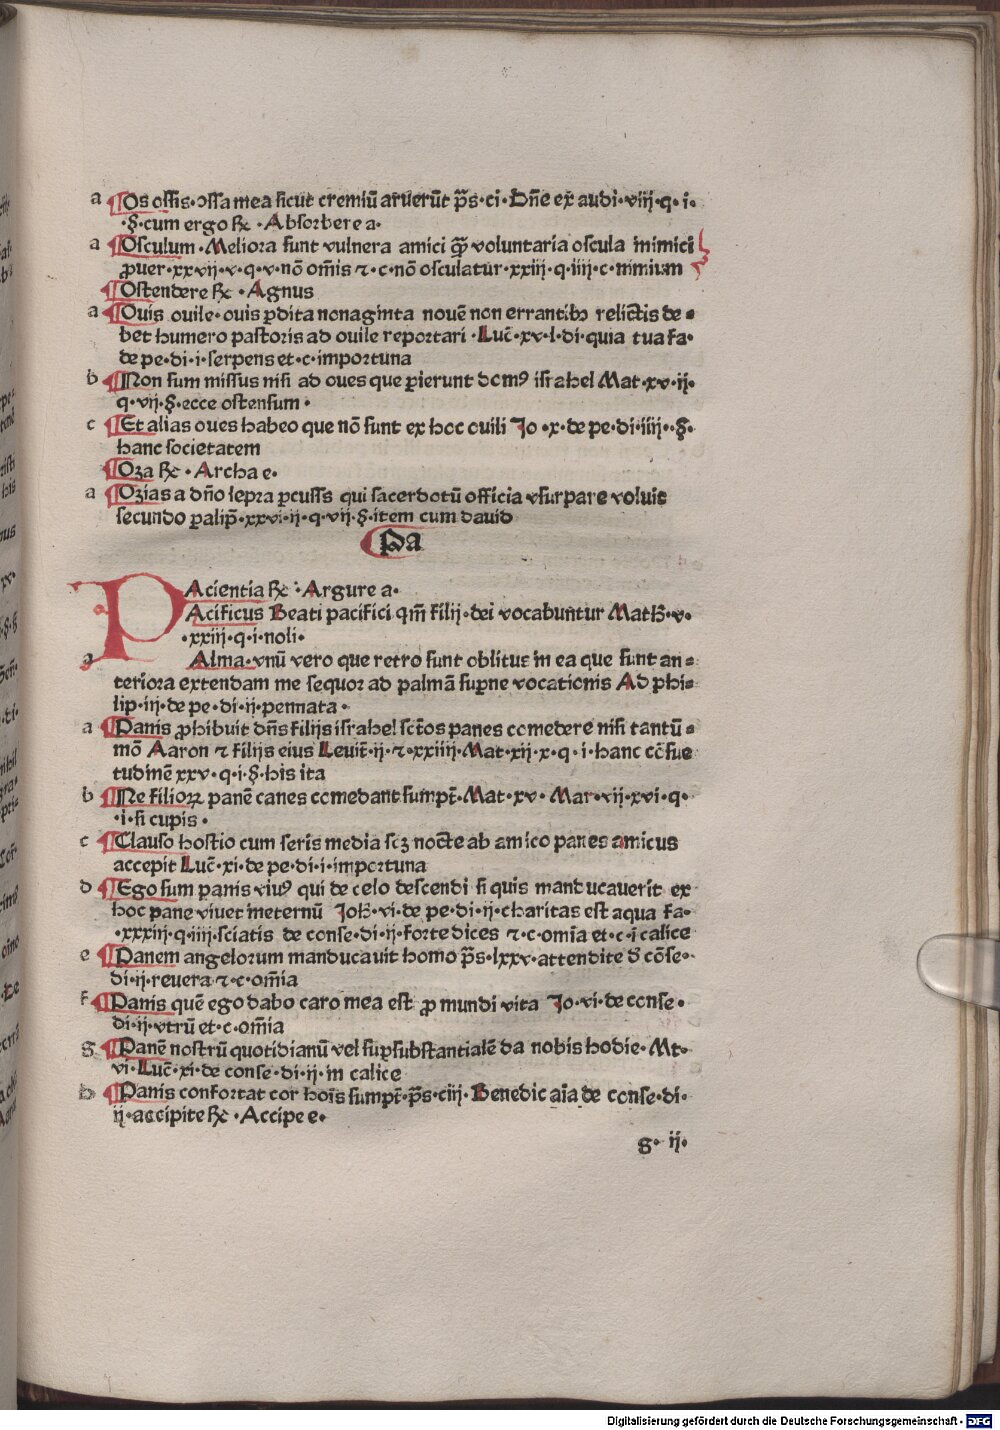 a ¶Os ossis·ossa mea sicut cremiū aruerūt p̄s·ci·Dn̄e exaudi·viij·q·i·
·§·cum ergo ℞·Absorbere a·
a ¶Osculum·Meliora sunt vulnera amici q̄ꝫ voluntaria oscula inimici
ꝓuer·xxvij·v·q·v·nō om̄is ⁊·c·nō osculatur·xxiij·q·iiij·c·nimium
¶Ostendere ℞·Agnus
a ¶Ouis ouile·ouis ꝑdita nonaginta nouē non errantib relictis de⸗
bet humero pastoris ad ouile reportari·Luc̄·xv·l·di·quia tua fa·
de pe·di·i·serpens et·c·importuna
b ¶Non sum missus nisi ad oues que ꝑierunt domꝰ israhel Mat·xv·ij·
q·vij·§·ecce ostensum·
c ¶Et alias oues habeo que nō sunt ex hoc ouili Jo·x·de pe·di·iiij·§·
hanc societatem
¶Oza ℞·Archa e·
a ¶Ozias a dn̄o lepra ꝑcusss qui sacerdotū officia vsurpare voluit
secundo ꝑalip̄·xxvi·ij·q·vij·§·item cum dauid
¶Pa
PAcientia ℞·Argure a·
Acificus Beati pacifici qm̄ filij·dei vocabuntur Math·v·
·xxiij·q·i·noli·
a Alma·vnū vero que retro sunt oblitus in ea que sunt an⸗
teriora extendam me sequor ad palmā suꝑne vocationis Ad phi⸗
lip·iij·de pe·di·ij·pennata·
a ¶Panis ꝓhibuit dn̄s filijs israhel sc̄tos panes comedere nisi tantū⸗
mō Aaron ⁊ filijs eius Leuit̄·ij·⁊·xxiiij·Mat·xij·x·q·i·hanc cōsue
tudinē xxv·q·i·§·his ita
b ¶Ne filioꝝ panē canes comedant sumpt̄·Mat·xv·Mar·vij·xvi·q·
·i·si cupis·
c ¶Clauso hostio cum seris media scꝫ nocte ab amico panes amicus
accepit Luc̄·xi·de pe·di·i·importuna
d ¶Ego sum panis viuꝰ qui de celo descendi si quis manducauerit ex
hoc pane viuet ineternū Joh·vi·de pe·di·ij·charitas est aqua fa·
·xxxiij·q·iiij·sciatis de conse·di·ij·forte dices ⁊·c·omīa et·c·i calice
e ¶Panem angelorum manducauit homo p̄s·lxxv·attendite d̄ cōse·
di·ij·reuera ⁊·c·om̄ia
f ¶Panis quē ego dabo caro mea est ꝓ mundi vita Jo·vi·de conse·
di·ij·vtrū et·c·om̄ia
g ¶Panē nostrū quotidianū vel suꝑsubstantialē da nobis hodie·Mt·
vi·Luc̄·xi·de conse·di·ij·in calice
h ¶Panis confortat cor hoīs sumpt̄·p̄s·ciij·Benedic aīa de conse·di·
ij·accipite ℞·Accipe e·
g·ij·
Digitalisierung gefördert durch die Deutsche Forschungsgemeinschaft - DFG